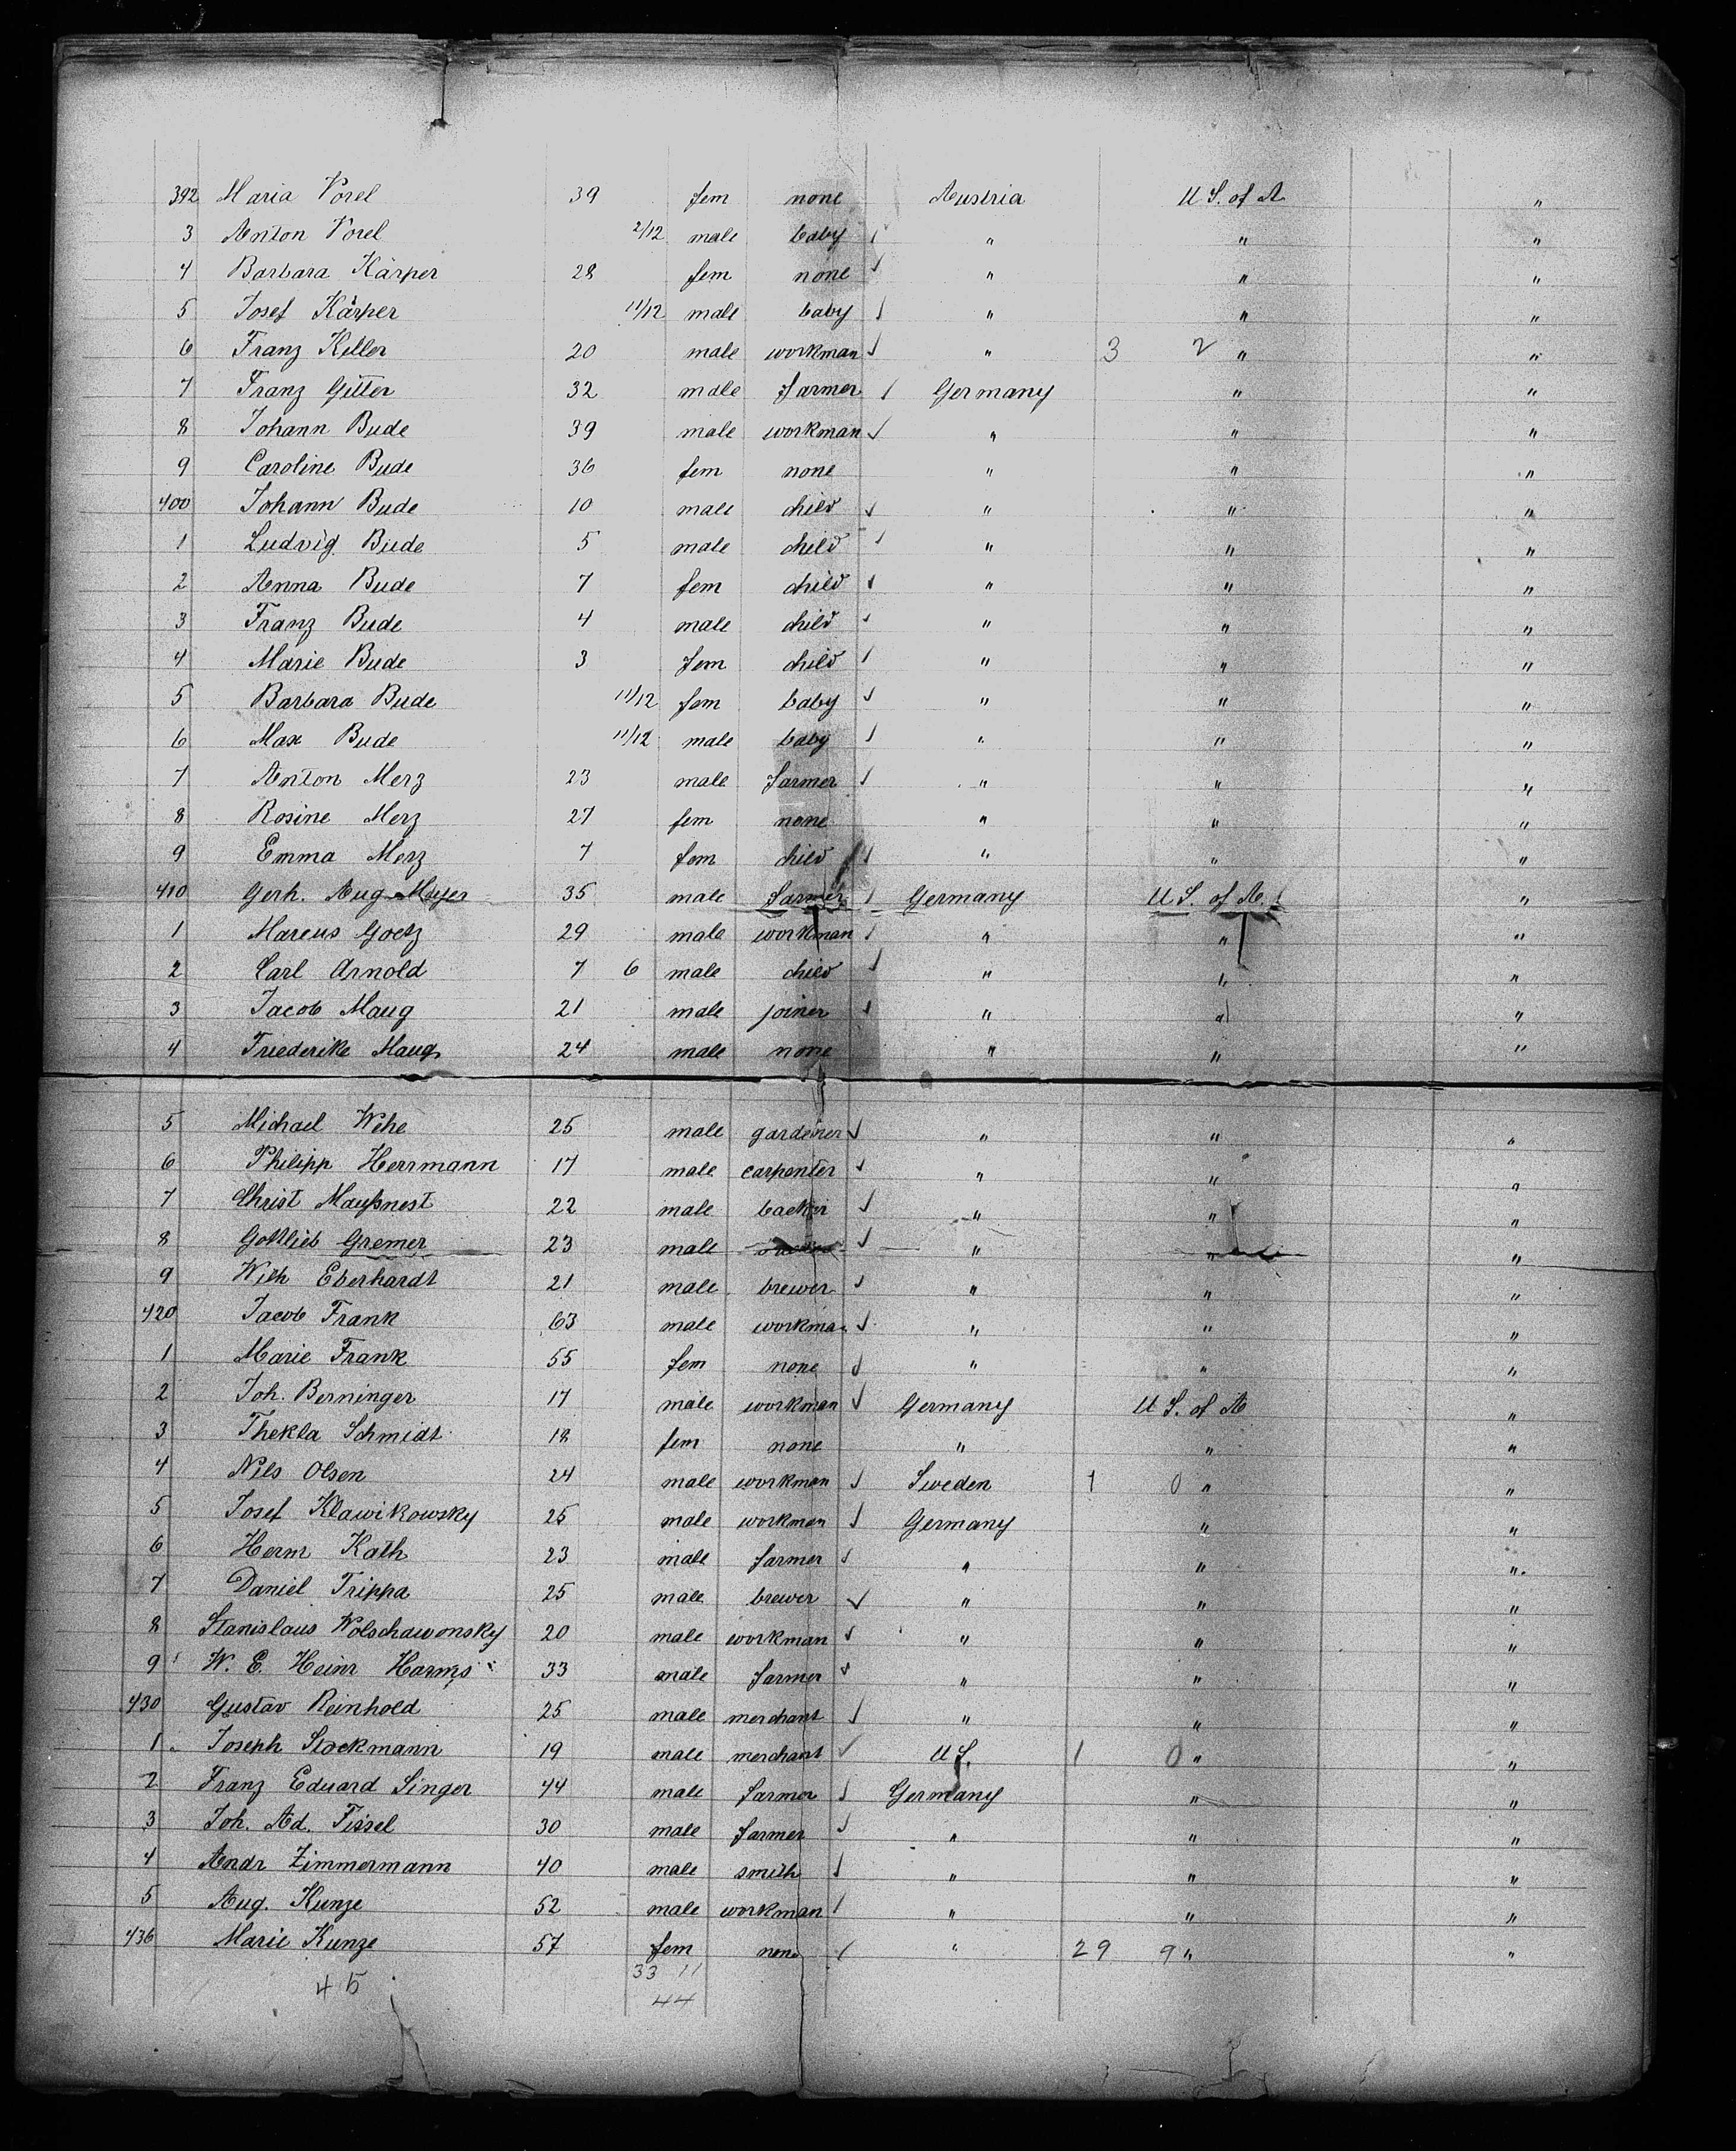 392 Maria Vorel 39 fem none Austria U S. of A "
3 Anton Vorel 2/12 male baby " " "
4 Barbara Kärper 28 fem none " " "
5 Josef Kärper 11/12 male baby " " "
6 Franz Keller 20 male workman " 3 2 " "
7 Franz Gitter 32 male farmer Germany " "
8 Johann Bude 39 male workman " " "
9 Caroline Bude 36 fem none " " "
400 Johann Bude 10 male child " " "
1 Ludvig Bude 5 male child " " "
2 Anna Bude 7 fem child " " "
3 Franz Bude 4 male child " " "
4 Marie Bude 3 fem child " " "
5 Barbara Bude 11/12 fem baby " " "
6 Max Bude 11/12 male baby " " "
7 Anton Merz 23 male farmer " " "
8 Rosine Merz 27 fem none " " "
9 Emma Merz 7 fem child " " "
410 Gerh. Aug Meyer 35 male farmer Germany U S. of A. "
1 Marcus Goetz 29 male workman " " "
2 Carl Arnold 7 6 male child " " "
3 Jacob Maug 21 male joiner " " "
4 Friederike Maug 24 male none " " "
5 Michael Wehe 25 male gardener " " "
6 Philipp Herrmann 17 male carpenter " " "
7 Christ Maußnest 22 male backer " " "
8 Gottlieb Gremer 23 male " " "
9 Wilh Eberhardt 21 male brewer " " "
420 Jacob Frank 63 male workman " " "
1 Marie Frank 55 fem none " " "
2 Joh. Berninger 17 male workman Germany U S. of A "
3 Thekla Schmidt 18 fem none " " "
4 Nils Olsen 24 male workman Sweden 1 0 " "
5 Josef Klawikowsky 25 male workman Germany " "
6 Herm Kath 23 male farmer " " "
7 Daniel Trippa 25 male brewer " " "
8 Stanislaus Wolschawonsky 20 male workman " " "
9 W. E. Heinr Harms 33 male farmer " " "
430 Gustav Reinhold 25 male merchant " " "
1 Joseph Stockmann 19 male merchant U S. 1 0 " "
2 Franz Eduard Singer 44 male farmer Germany " "
3 Joh. Ad. Fissel 30 male farmer " " "
4 Andr Zimmermann 40 male smith " " "
5 Aug. Kunze 52 male workman " " "
436 Marie Kunze 57 fem none " 29 9 " "
33 11
45 44